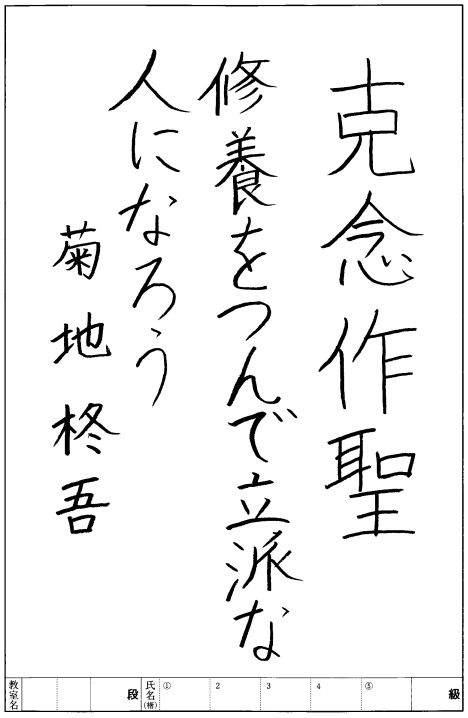 克念作聖
修養をつんで立派な
人になろう
菊地柊吾
教室名
段
氏名(楷)
①
2
3
4
⑤
級